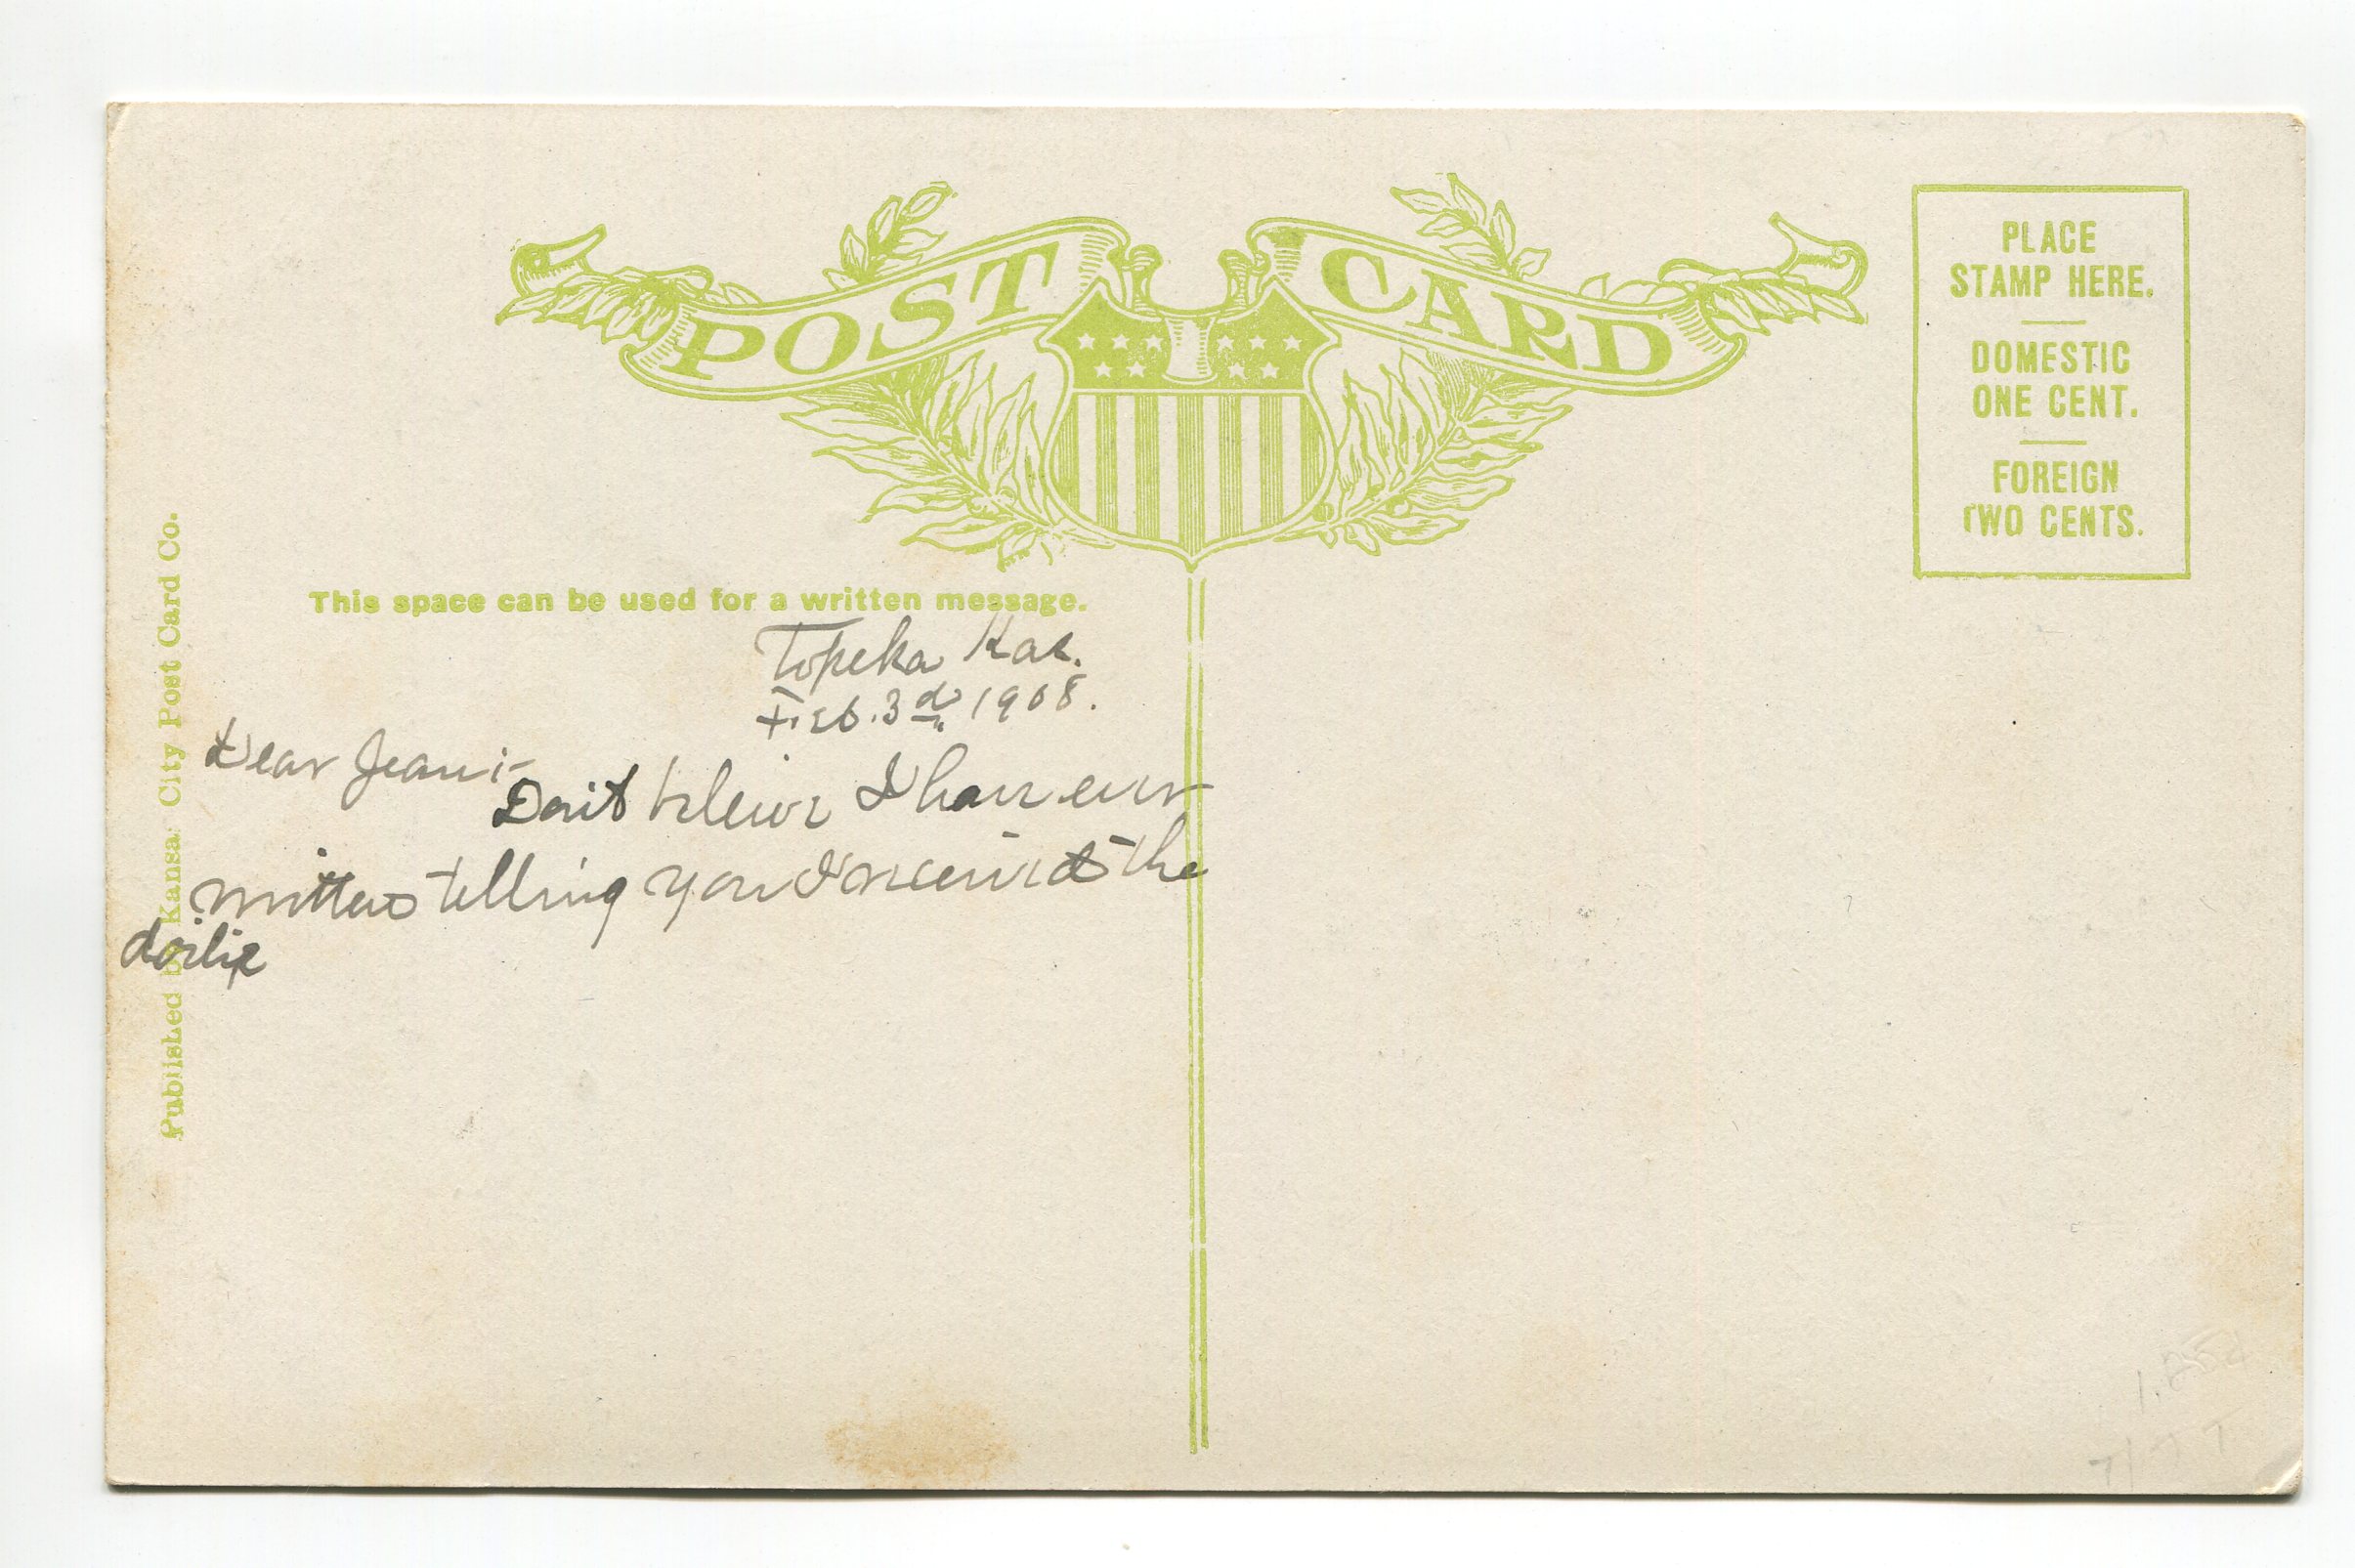 POST CARD
PLACE
STAMP HERE.
DOMESTIC
ONE CENT.
FOREIGN
TWO CENTS.
This space can be used for a written message.
Topeka Kas.
Feb. 3d 1908.
Dear Jean:-
Don't believe I have ever
written telling you I received the
doilie
Published by Kansas City Post Card Co.
7/77